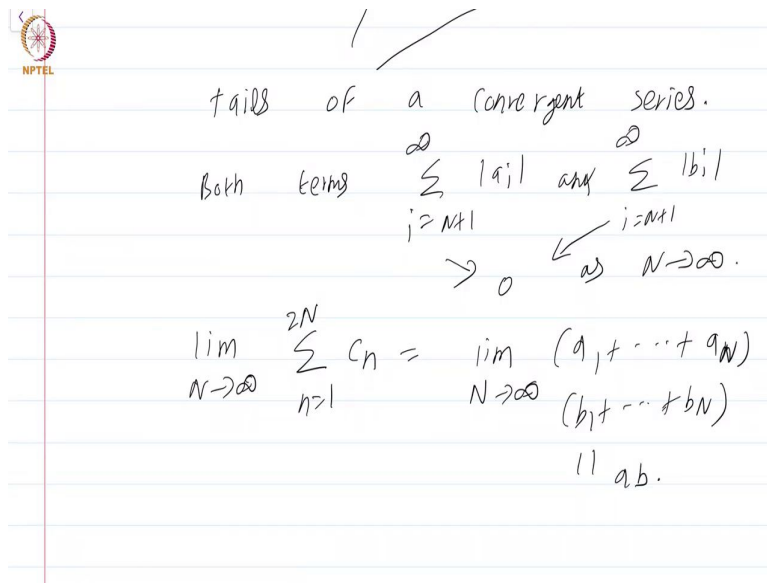 NPTEL
tails of a convergent series.
Both terms ∞ Σ j=N+1 |aj| and ∞ Σ j=N+1 |bj|
→ 0 as N→∞.
lim N→∞ 2N Σ n=1 Cn = lim N→∞ (a1+ ··· + aN)
(b1+ ··· + bN)
|| ab.